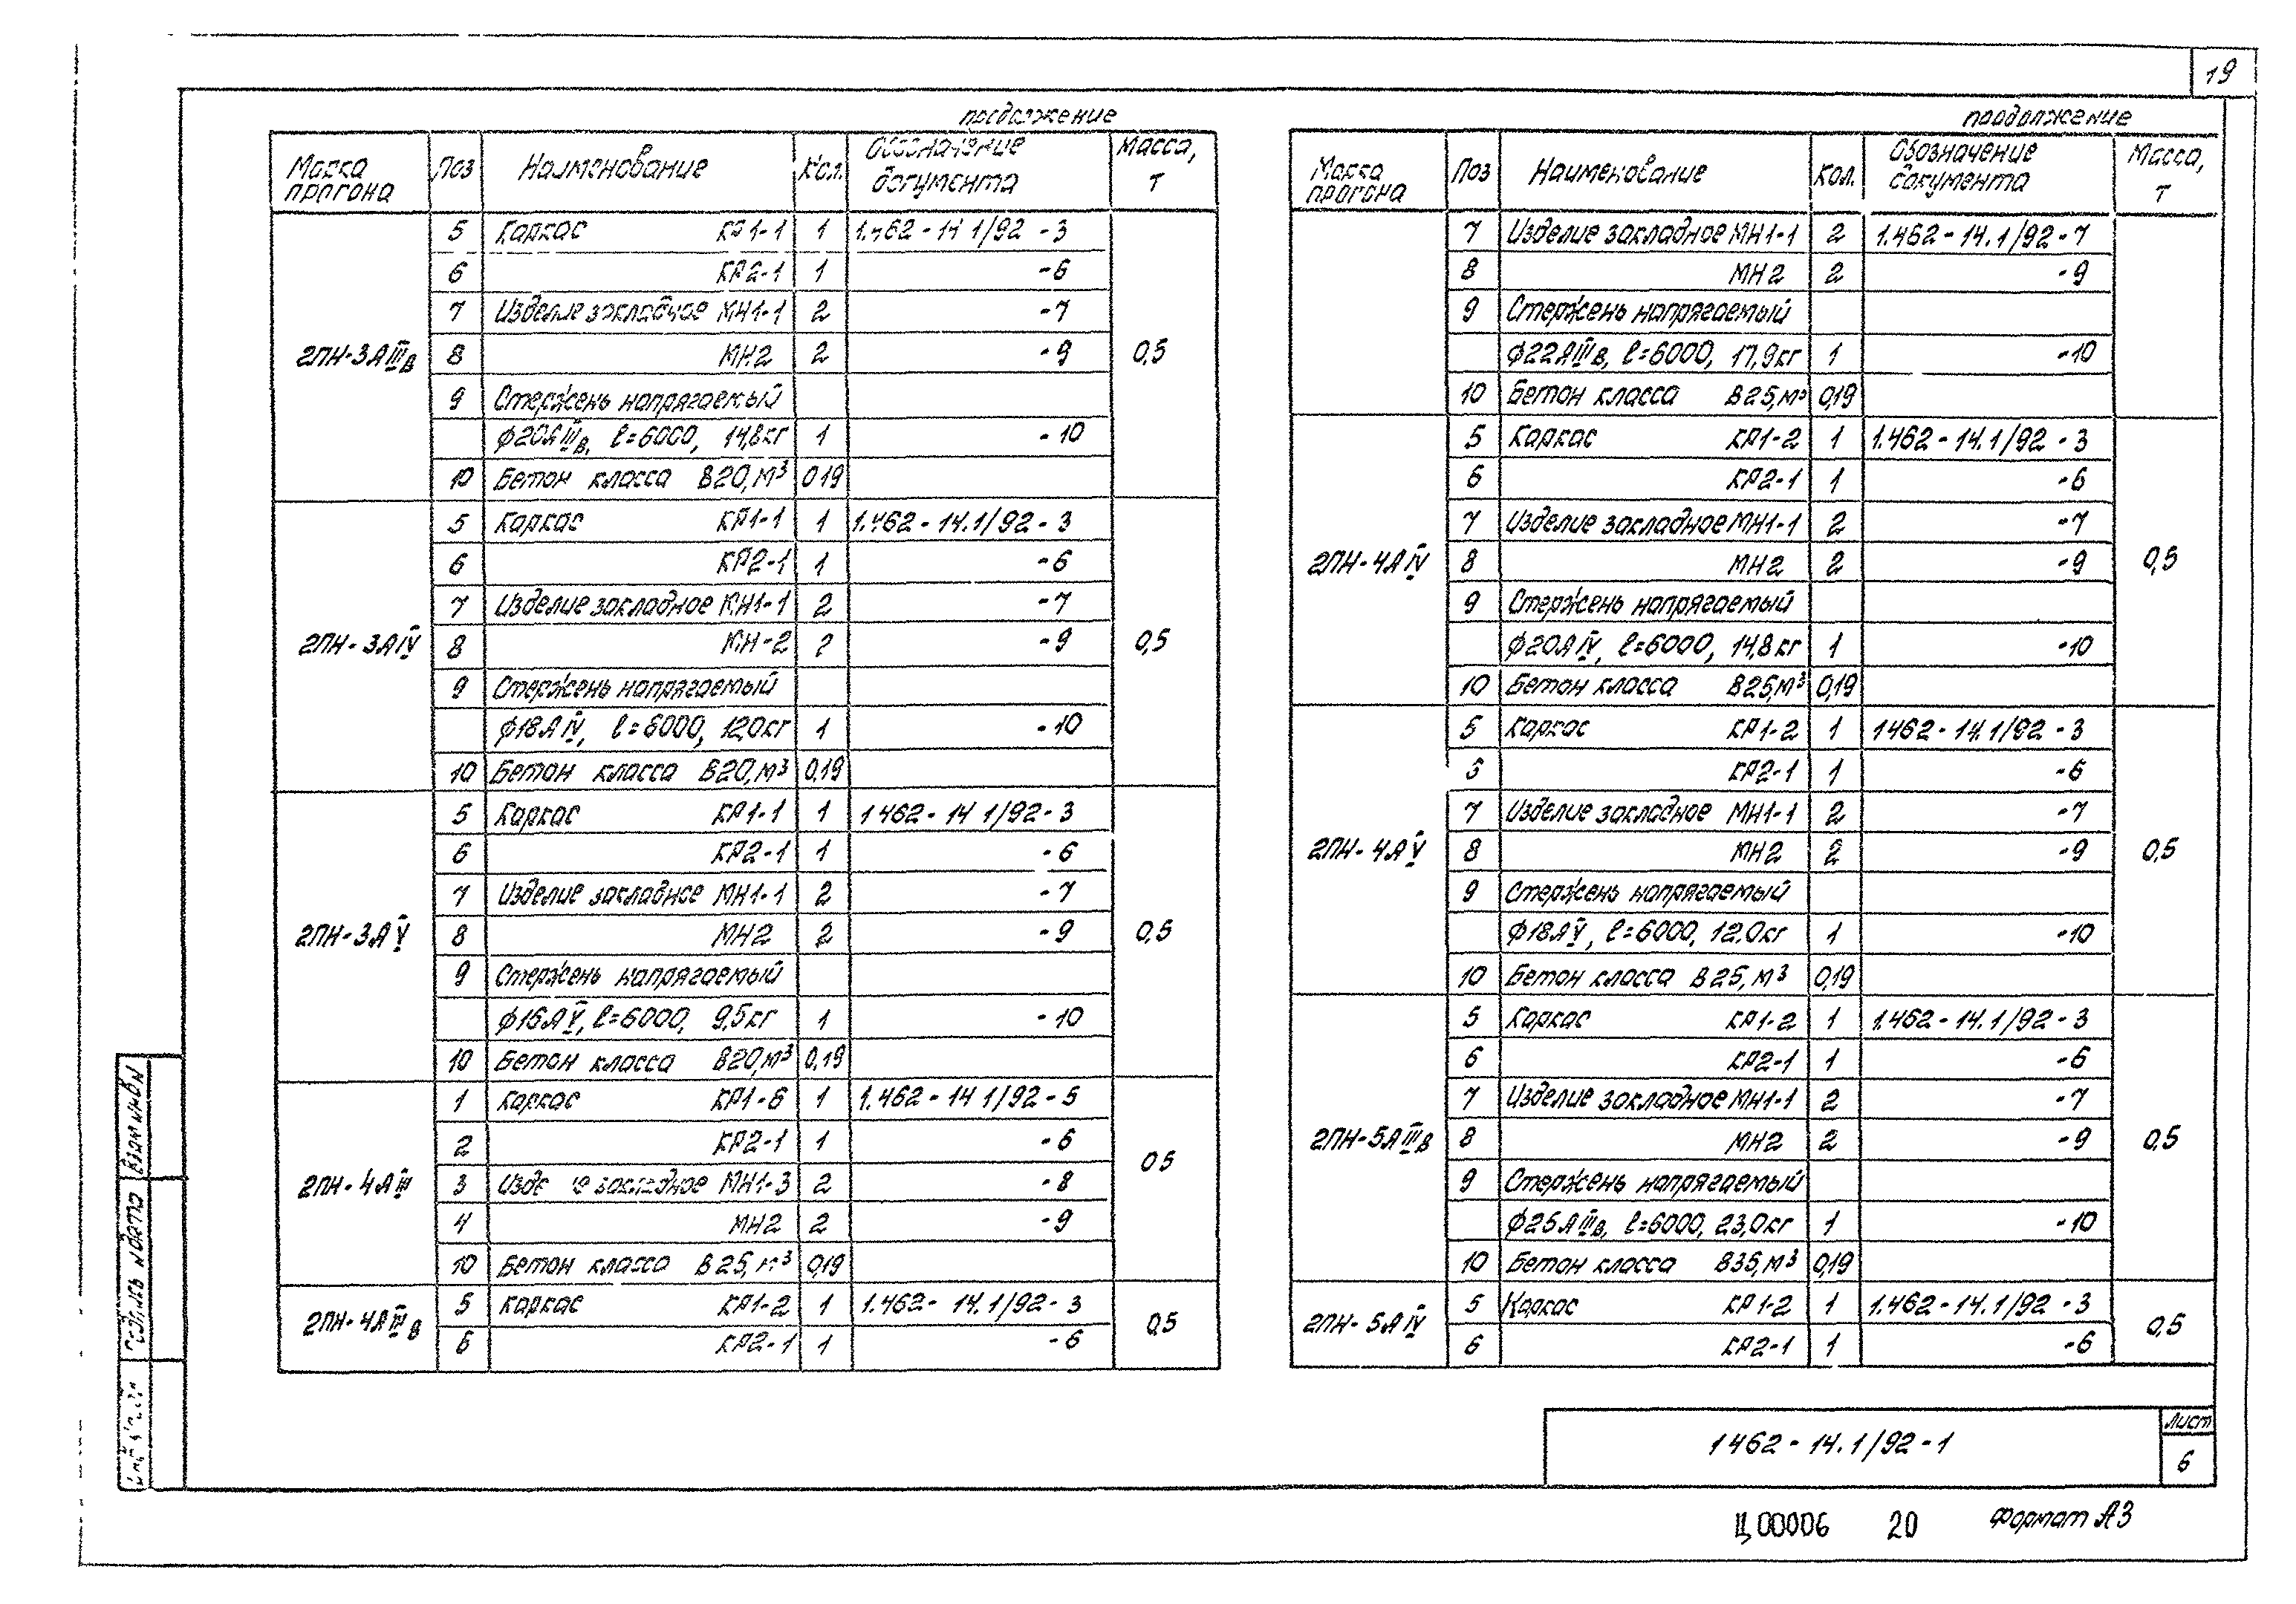 19
продолжение
Марка прогона Поз Наименование Кол. Обозначение документа Масса, т
5 Каркас КР1-1 1 1.462-14.1/92 -3
6 КР2-1 1 -6
7 Изделие закладное МН1-1 2 -7
2ПН-3АIIIв 8 МН2 2 -9 0,5
9 Стержень напрягаемый
ф20АIIIв, l=6000, 14,8кг 1 -10
10 Бетон класса В20, м³ 0,19
5 Каркас КР1-1 1 1.462-14.1/92-3
6 КР2-1 1 -6
7 Изделие закладное МН1-1 2 -7
2ПН-3АIV 8 МН-2 2 -9 0,5
9 Стержень напрягаемый
ф18АIV, l=6000, 12,0кг 1 -10
10 Бетон класса В20, м³ 0,19
5 Каркас КР1-1 1 1462-14 1/92-3
6 КР2-1 1 -6
7 Изделие закладное МН1-1 2 -7
2ПН-3АV 8 МН2 2 -9 0,5
9 Стержень напрягаемый
ф16АV, l=6000, 9,5кг 1 -10
10 Бетон класса В20, м³ 0,19
1 Каркас КР1-6 1 1.462-14 1/92-5
2 КР2-1 1 -6
2ПН-4АIII 3 Изделие закладное МН1-3 2 -8 05
4 МН2 2 -9
10 Бетон класса В25, м³ 0,19
2ПН-4АIIIв 5 Каркас КР1-2 1 1.462-14.1/92-3 0,5
6 КР2-1 1 -6
продолжение
Марка прогона Поз Наименование Кол. Обозначение документа Масса, т
7 Изделие закладное МН1-1 2 1.462-14.1/92-7
8 МН2 2 -9
9 Стержень напрягаемый
ф22АIIIв, l=6000, 17,9кг 1 -10
10 Бетон класса В25, м³ 0,19
5 Каркас КР1-2 1 1.462-14.1/92-3
6 КР2-1 1 -6
7 Изделие закладное МН1-1 2 -7
2ПН-4АIV 8 МН2 2 -9 0,5
9 Стержень напрягаемый
ф20АIV, l=6000, 14,8кг 1 -10
10 Бетон класса В25, м³ 0,19
5 Каркас КР1-2 1 1462-14.1/92-3
6 КР2-1 1 -6
7 Изделие закладное МН1-1 2 -7
2ПН-4АV 8 МН2 2 -9 0,5
9 Стержень напрягаемый
ф18АV, l=6000, 12,0кг 1 -10
10 Бетон класса В25, м³ 0,19
5 Каркас КР1-2 1 1.462-14.1/92-3
6 КР2-1 1 -6
7 Изделие закладное МН1-1 2 -7
2ПН-5АIIIв 8 МН2 2 -9 0,5
9 Стержень напрягаемый
ф25АIIIв, l=6000, 23,0кг 1 -10
10 Бетон класса В35, м³ 0,19
2ПН-5АIV 5 Каркас КР1-2 1 1.462-14.1/92-3 0,5
6 КР2-1 1 -6
Взам инв№
Подпись и дата
1462-14.1/92-1
Лист
6
Ц00006 20 Формат А3